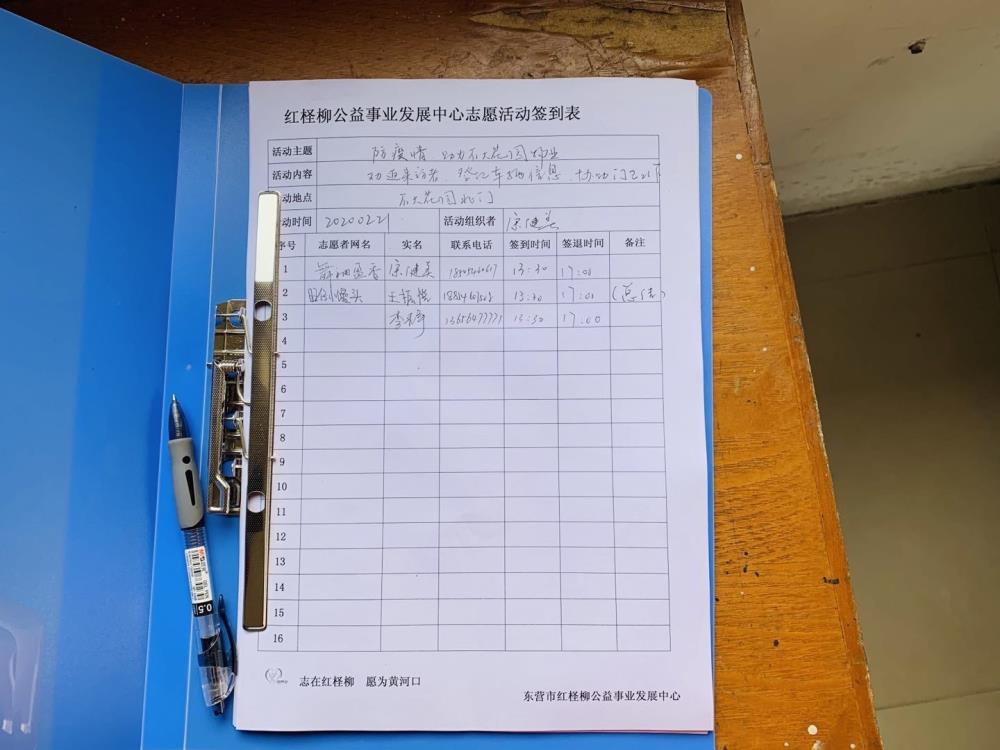 红柽柳公益事业发展中心志愿活动签到表
活动主题 防疫情 助力石大花园物业
活动内容 劝返来访者、登记车辆信息、协助门卫
动地点 石大花园北门
动时间 20200221 活动组织者 宗健美
序号 志愿者网名 实名 联系电话 签到时间 签退时间 备注
1 宗健美 13:30 17:00
2 旺仔小馒头 王振 13:30 17:00
3 李 13:30 17:00
4
5
6
7
8
9
10
11
12
13
14
15
16
志在红柽柳 愿为黄河口
东营市红柽柳公益事业发展中心
0.5